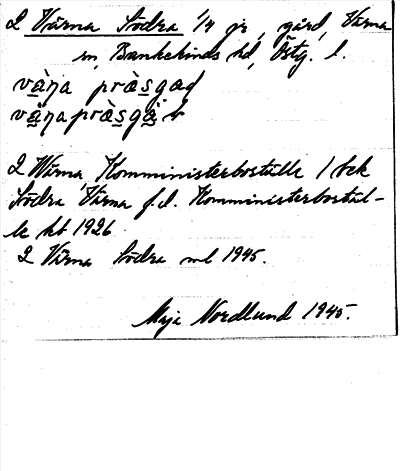 2 Värna Södra 1/4 jr, gård, Värna
sn, Bankekinds hd, Östg. l.
2 Wärna Komministerboställe 1 bck
Södra Värna f.d. Komministerbostäl-
le kb 1926
2 Värna Södra ml 1945.
Maja Nordlund 1945.